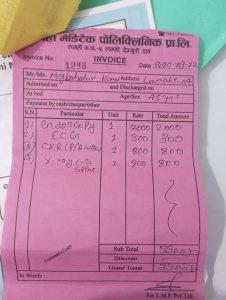 मेडिटेक पोलिक्लिनिक प्रा.लि.
लमही न.पा.-५ लमही, देउखुरी दाङ
Invoice No : 1298 INVOICE Date:
Mr./Ms. Address Lamahi-04
Admitted on and Discharged on
At bed Age/Sex 45/M
Payment by cash/cheque/other
S.N. Particular Unit Rate Total Amount
1) Endoscopy 1 2000 2000
2) ECG 1 300 300
3) CXR (P/A view) 1 800 800
4) X-ray L-S Spine 1 800 800
Customer Copy
Sub Total 3900/-
Discount
Grand Total 3900/-
In Words :
For L.M.P. Pvt. Ltd.